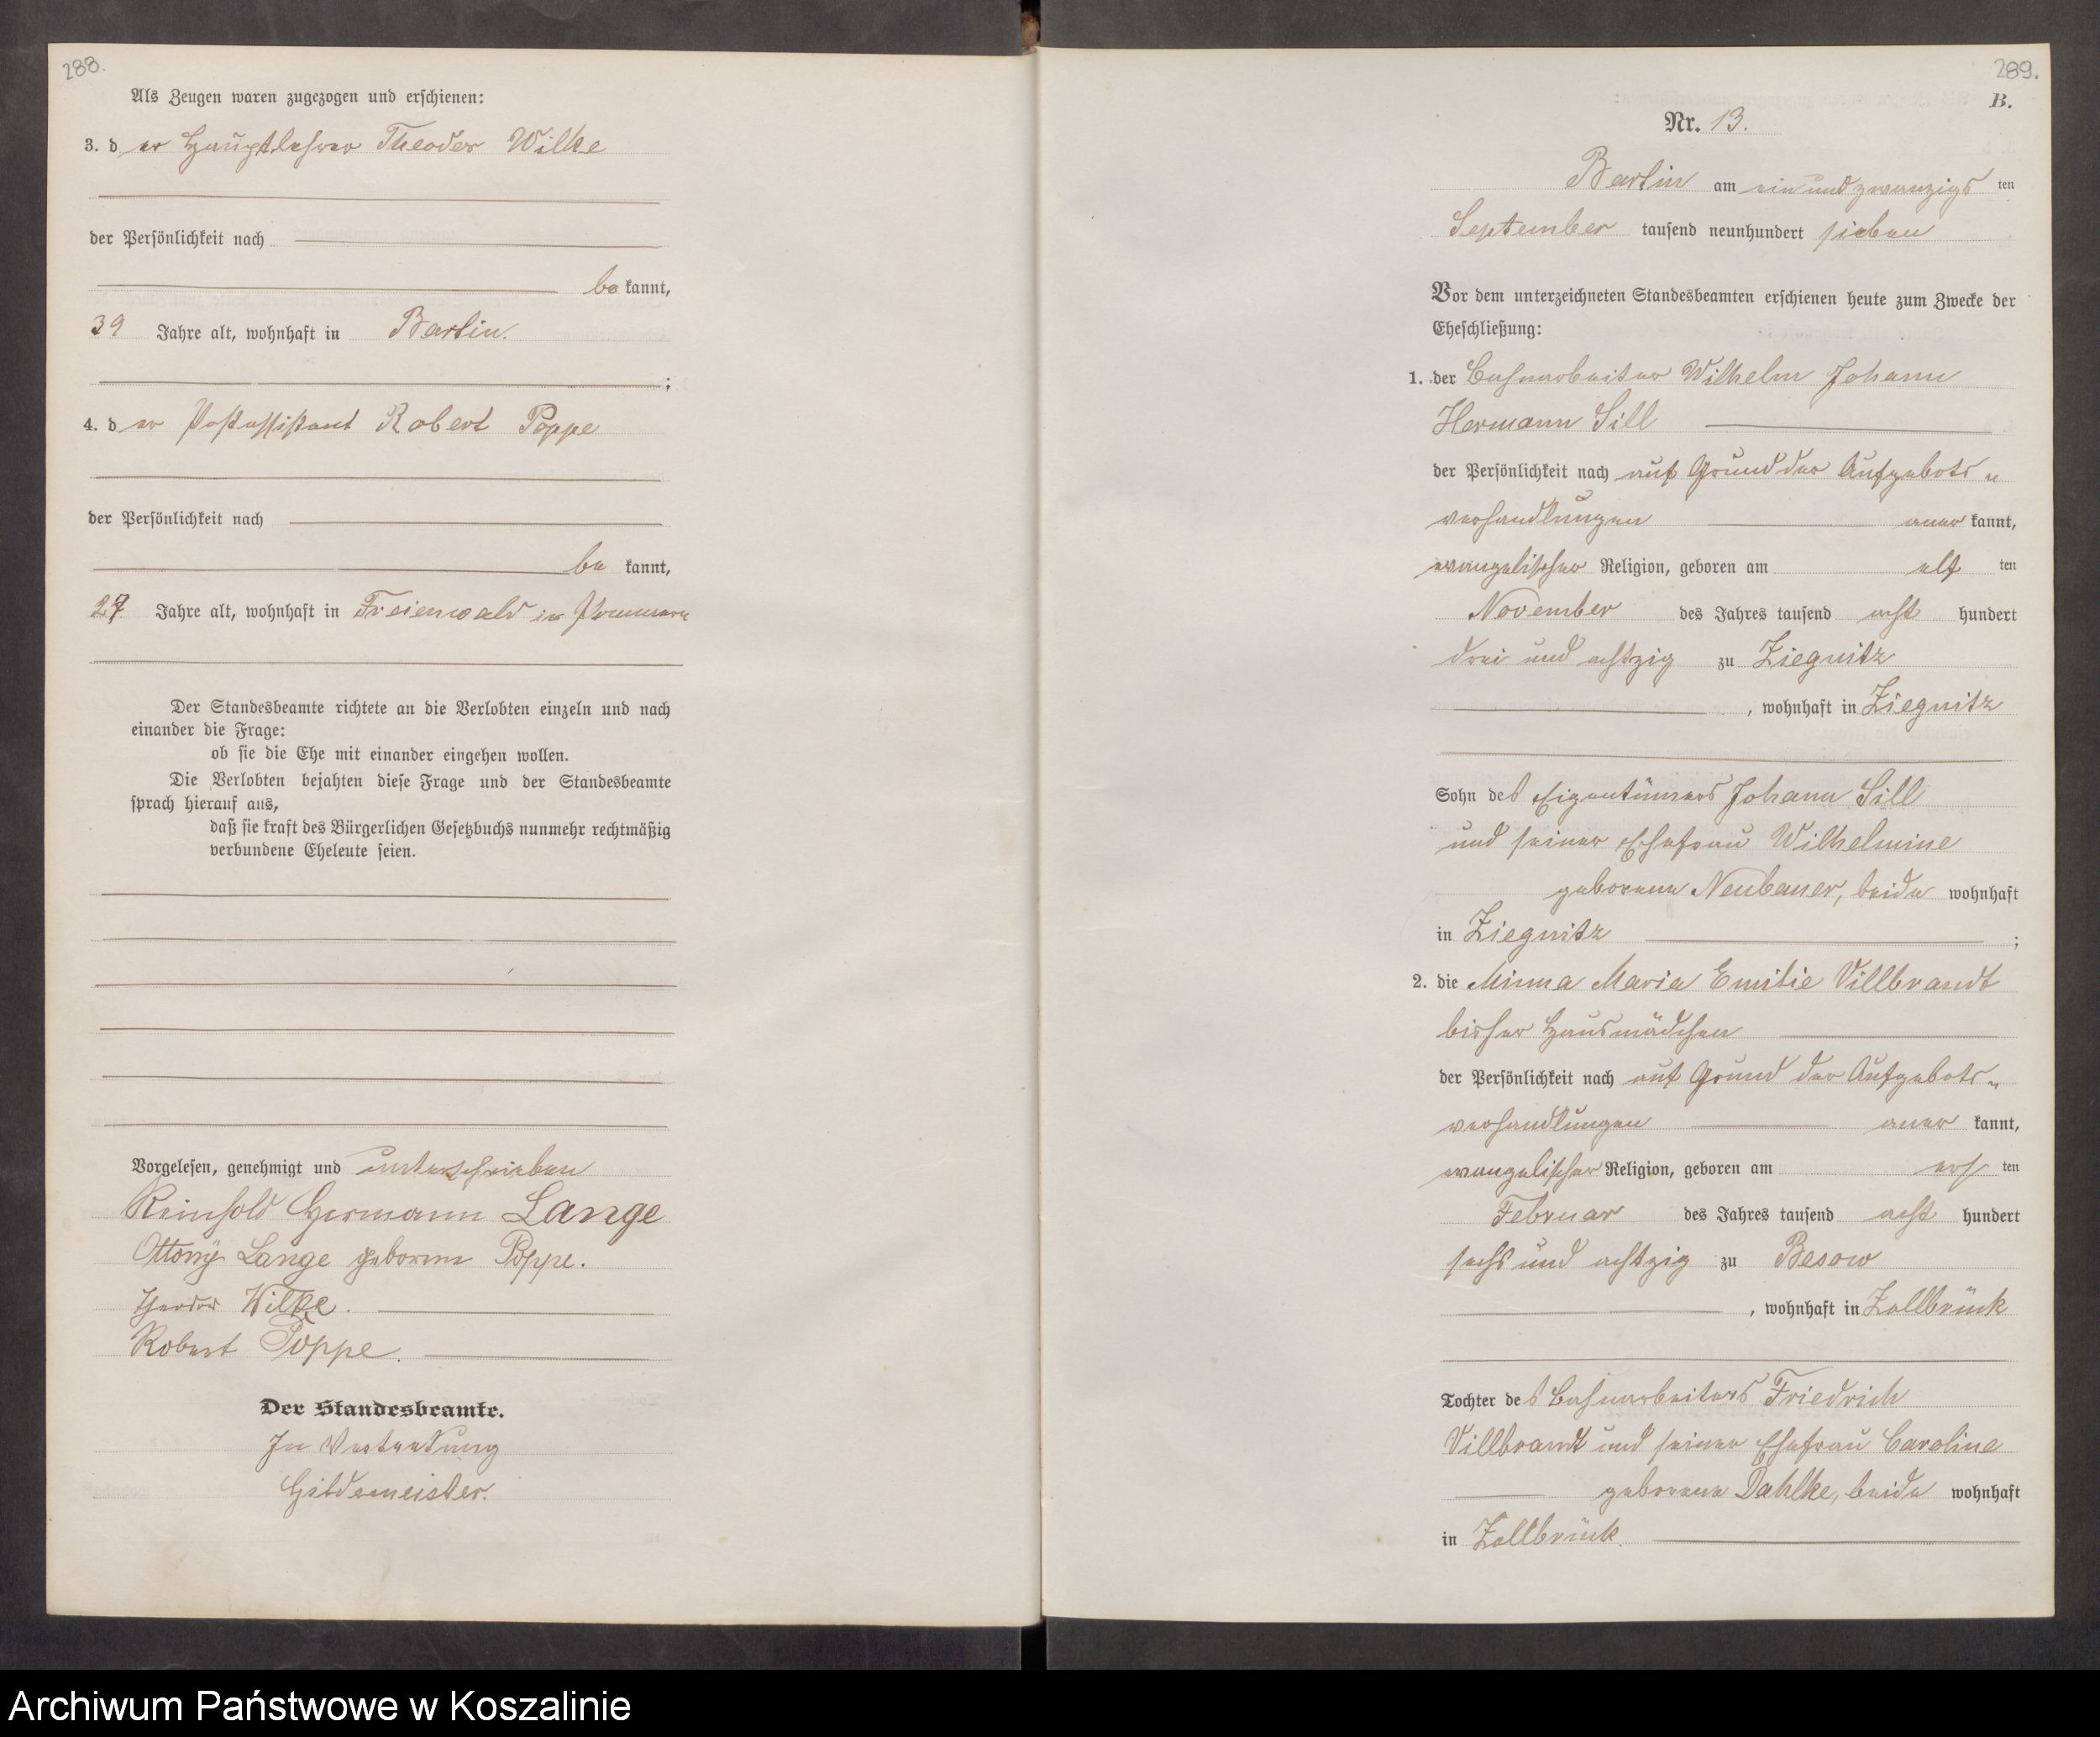 288.
Als Zeugen waren zugezogen und erschienen:
3. der Hauptlehrer Theodor Wilke
der Persönlichkeit nach
be kannt,
39 Jahre alt, wohnhaft in Bartin.
;
4. der Postassistent Robert Poppe
der Persönlichkeit nach
be kannt,
27 Jahre alt, wohnhaft in Freienwald in Pommern
Der Standesbeamte richtete an die Verlobten einzeln und nach
einander die Frage:
ob sie die Ehe mit einander eingehen wollen.
Die Verlobten bejahten diese Frage und der Standesbeamte
sprach hierauf aus,
daß sie kraft des Bürgerlichen Gesetzbuchs nunmehr rechtmäßig
verbundene Eheleute seien.
Vorgelesen, genehmigt und unterschrieben
Reinhold Hermann Lange
Ottony Lange geborene Poppe.
Theodor Wilke.
Robert Poppe.
Der Standesbeamte.
In Vertretung
Gildemeister.
289.
B.
Nr. 13.
Bartin am ein und zwanzigs ten
September tausend neunhundert sieben
Vor dem unterzeichneten Standesbeamten erschienen heute zum Zwecke der
Eheschließung:
1. der Bahnarbeiter Wilhelm Johann
Hermann Sill
der Persönlichkeit nach auf Grund der Aufgebots-
verhandlungen aner kannt,
evangelischer Religion, geboren am elf ten
November des Jahres tausend acht hundert
drei und achtzig zu Ziegnitz
, wohnhaft in Ziegnitz
Sohn des Eigentümers Johann Sill
und seiner Ehefrau Wilhelmine
geborene Neubauer, beide wohnhaft
in Ziegnitz ;
2. die Minna Maria Emilie Villbrandt
bisher Hausmädchen
der Persönlichkeit nach auf Grund der Aufgebots-
verhandlungen aner kannt,
evangelischer Religion, geboren am ers ten
Februar des Jahres tausend acht hundert
sechs und achtzig zu Besow
, wohnhaft in Zollbrück
Tochter des Bahnarbeiters Friedrich
Villbrandt und seiner Ehefrau Caroline
geborene Dahlke, beide wohnhaft
in Zollbrück.
Archiwum Państwowe w Koszalinie